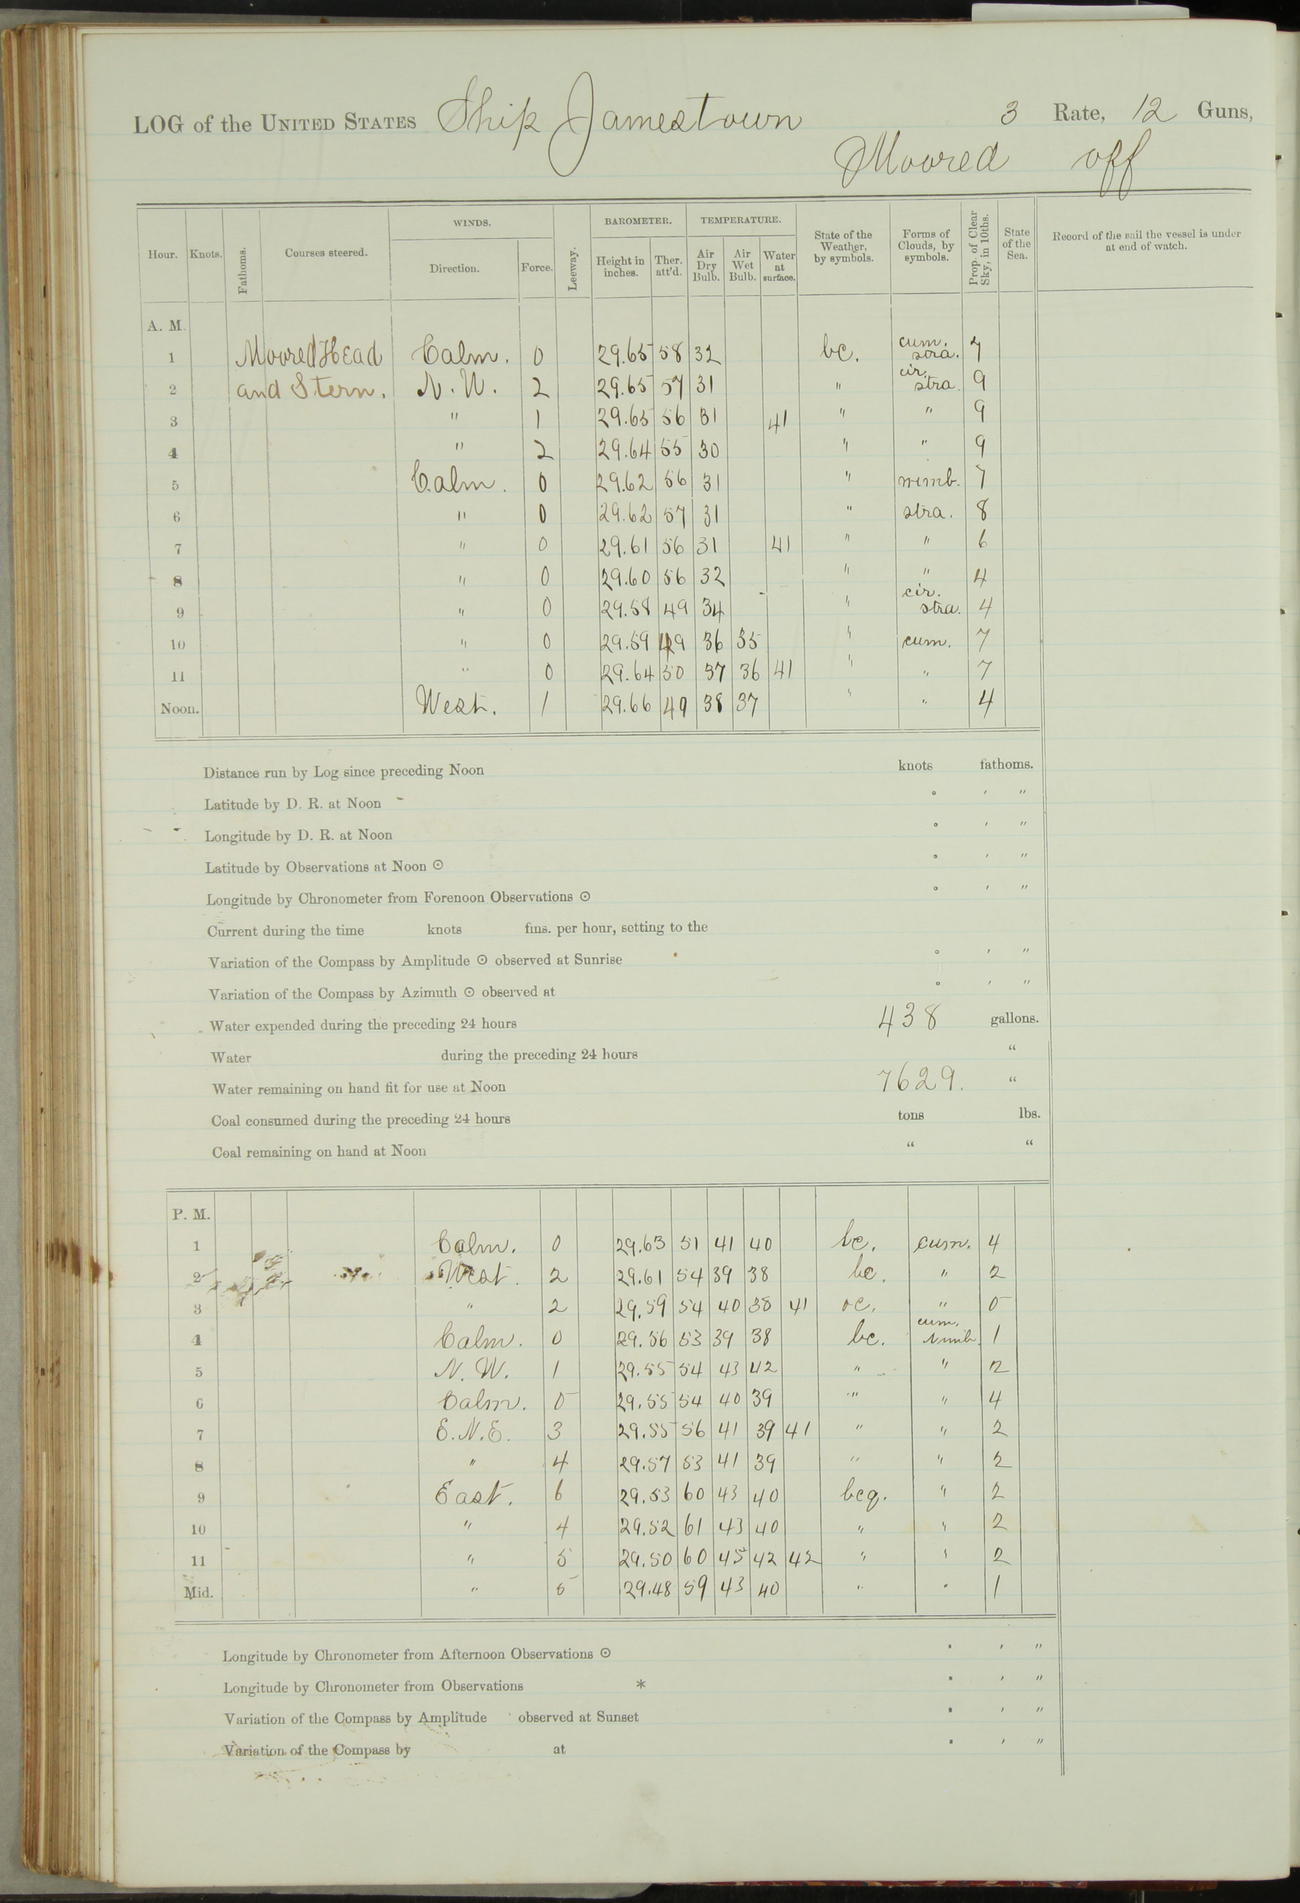 LOG of the UNITED STATES Ship Jamestown 3 Rate, 12 Guns,
Moored off
Hour. Knots. Fathoms. Courses steered. WINDS. Direction. Force. Leeway. BAROMETER. Height in inches. Ther. att'd. TEMPERATURE. Air Dry Bulb. Air Wet Bulb. Water at surface. State of the Weather, by symbols. Forms of Clouds, by symbols. Prop. of Clear Sky, in 10ths. State of the Sea. Record of the sail the vessel is under at end of watch.
A. M.
1 Moored Head Calm. 0 29.65 58 32 bc. cum. stra. 7
2 and Stern. N. W. 2 29.65 57 31 " cir. stra. 9
3 " 1 29.65 56 31 41 " " 9
4 " 2 29.64 55 30 " " 9
5 Calm. 0 29.62 56 31 " nimb. 7
6 " 0 29.62 57 31 " stra. 8
7 " 0 29.61 56 31 41 " " 6
8 " 0 29.60 56 32 " " 4
9 " 0 29.58 49 34 " cir. stra. 4
10 " 0 29.59 49 36 35 " cum. 7
11 " 0 29.64 50 37 36 41 " " 7
Noon. West. 1 29.66 49 38 37 " " 4
Distance run by Log since preceding Noon knots fathoms.
Latitude by D. R. at Noon ° ′ ″
Longitude by D. R. at Noon ° ′ ″
Latitude by Observations at Noon ⊙ ° ′ ″
Longitude by Chronometer from Forenoon Observations ⊙ ° ′ ″
Current during the time knots fms. per hour, setting to the
Variation of the Compass by Amplitude ⊙ observed at Sunrise ° ′ ″
Variation of the Compass by Azimuth ⊙ observed at ° ′ ″
Water expended during the preceding 24 hours 438 gallons.
Water during the preceding 24 hours "
Water remaining on hand fit for use at Noon 7629. "
Coal consumed during the preceding 24 hours tons lbs.
Coal remaining on hand at Noon " "
P. M.
1 Calm. 0 29.63 51 41 40 bc. cum. 4
2 West. 2 29.61 54 39 38 bc. " 2
3 " 2 29.59 54 40 38 41 oc. " 0
4 Calm. 0 29.56 53 39 38 bc. cum. Nimb. 1
5 N. W. 1 29.55 54 43 42 " " 2
6 Calm. 0 29.55 54 40 39 " " 4
7 E.N.E. 3 29.55 56 41 39 41 " " 2
8 " 4 29.57 53 41 39 " " 2
9 East. 6 29.53 60 43 40 bcq. " 2
10 " 4 29.52 61 43 40 " " 2
11 " 5 29.50 60 45 42 42 " " 2
Mid. " 5 29.48 59 43 40 " " 1
Longitude by Chronometer from Afternoon Observations ⊙ ° ′ ″
Longitude by Chronometer from Observations * ° ′ ″
Variation of the Compass by Amplitude observed at Sunset ° ′ ″
Variation of the Compass by at ° ′ ″